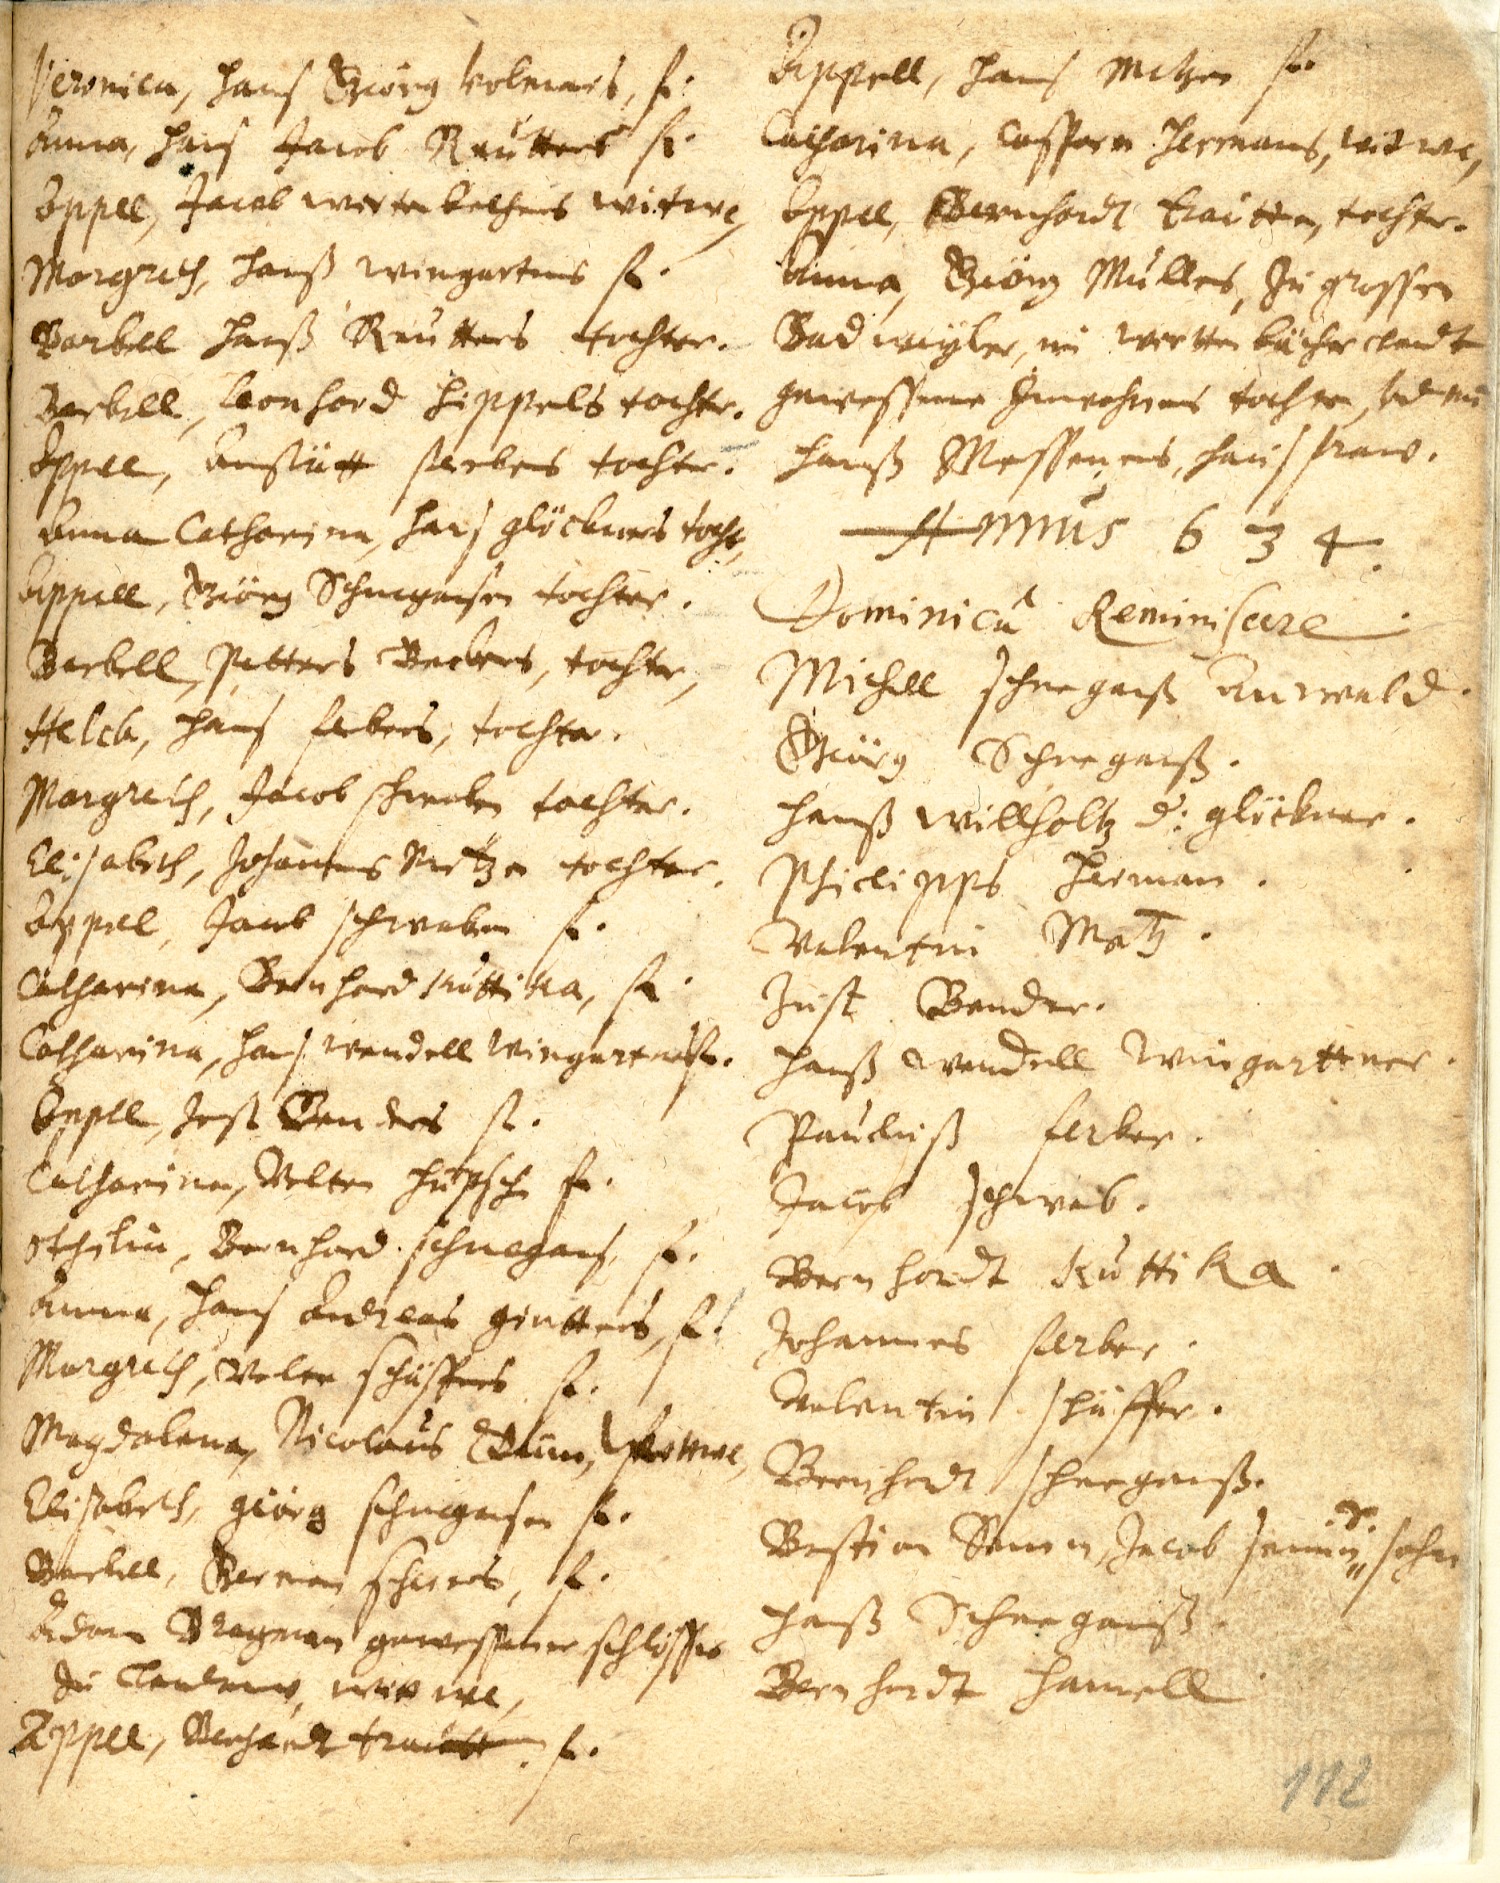 Veronica, Hans Giörg Volmars, f.
Anna, Hans Jacob Reutters f.
Appel, Jacob wirtenbechers witwe,
Margreth, Hanß wingartners f.
Barbell Hanß Reutters tochter.
Barbell, Leonhard Hippels tochter.
Appel, Anstätt ferbers tochter.
Anna Catharina, Hans glöckners tocht,
Appell, Giörg Schneegansen tochter.
Barbell, Petters Beckers, tochter,
Hans ferbers, tochter.
Margreth, Jacob schwaben tochter.
Elisabeth, Johannes Metzen tochter.
Appel, Jacob schwaben f.
Catharina, Bernhard Kuttika, f.
Catharina, Hans wendell wingartners f.
Appell, Jost Benders f.
Catharina, Velten Hüpsch f.
Othilia, Bernhard schneegans f.
Anna, Hans Andreas f.
Margreth, Velten schäffers f.
Magdalena, Nicolaus witwe,
Elisabeth, giörg schneegansen f.
Barbell, Herman f.
Adam gewessener schlosser
zu Landaw, witwe,
Appel, Bernhardt trautt. f.
Appell, Hans Metzen f.
Catharina, Casparn Hermans, witwe,
Appel, Bernhardt trautten, tochter.
Anna, Giörg Müllers, zu grossen
Badwyler, im wirttenbächerlandt
gewessenen Einwohners tochter,
Hanß Messeners, hausfraw.
Annus 634.
Dominica Reminiscere.
Michell schneeganß Anwald.
Giörg Schneeganß.
Hanß willholtz d: glöckner.
Philipps Herman.
Valentin Metz.
Just Bender.
Hanß wendell Wingarttner.
Pauluß ferber.
Jacob schwab.
Bernhardt Kuttika.
Johannes ferber.
Valentin schäffer.
Bernhardt schneeganß.
Bastian Semn, Jacob sohn
Hanß Schneeganß.
Bernhardt Hamell
112